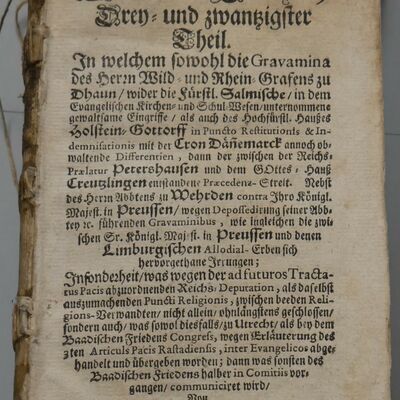 Drey- und zwantzigster
Theil.
In welchem sowohl die Gravamina
des Herrn Wild- und Rhein-Grafens zu
Dhaun / wider die Fürstl. Salmische / in dem
Evangelischen Kirchen- und Schul-Wesen / unternommene
gewaltsame Eingriffe / als auch des Hochfürstl. Haußes
Holstein-Gottorff in Puncto Restitutionis & In-
demnisationis mit der Cron Däñemarck annoch ob-
waltende Differentien, dann der zwischen der Reichs-
Prælatur Petershausen und dem GOttes-Hauß
Creutzlingen entstandene Præcedenz-Streit. Nebst
des Herrn Abbtens zu Wehrden contra Jhro Königl.
Majest. in Preussen / wegen Depossedirung seiner Abb-
tey ꝛc. führenden Gravaminibus, wie ingleichen die zwi-
schen Sr. Königl. Majest. in Preussen und denen
Limburgischen Allodial-Erben sich
hervorgethane Irrungen;
Insonderheit / was wegen der ad futuros Tracta-
tus Pacis abzuordnenden Reichs-Deputation, als daselbst
auszumachenden Puncti Religionis, zwischen beeden Reli-
gions-Verwandten / nicht allein / ohnlängstens geschlossen /
sondern auch / was sowol diesfalls / zu Utrecht / als bey dem
Baadischen Friedens Congress, wegen Erläuterung des
3ten Articuls Pacis Rastadiensis, inter Evangelicos abge-
handelt und übergeben worden; dann was sonsten des
Baadischen Friedens halber in Comitiis vor-
gangen / communiciret wird /
Von